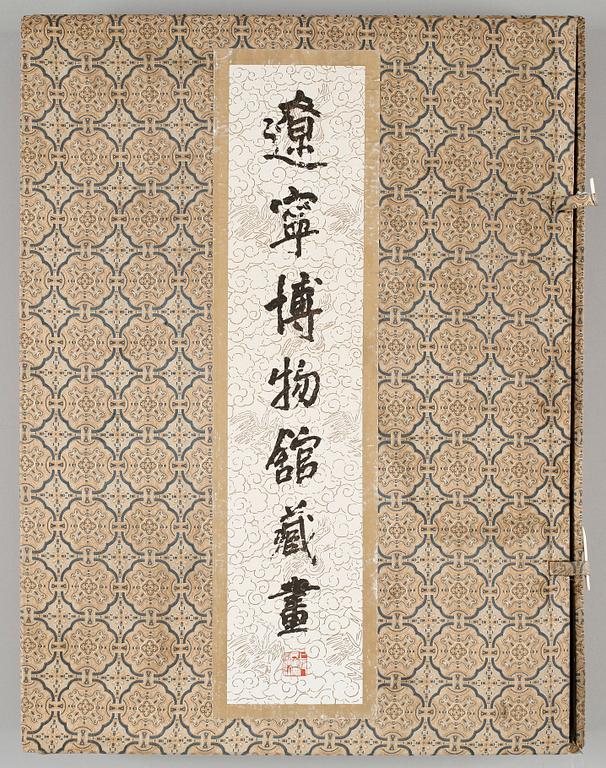 遼寧博物舘藏畫